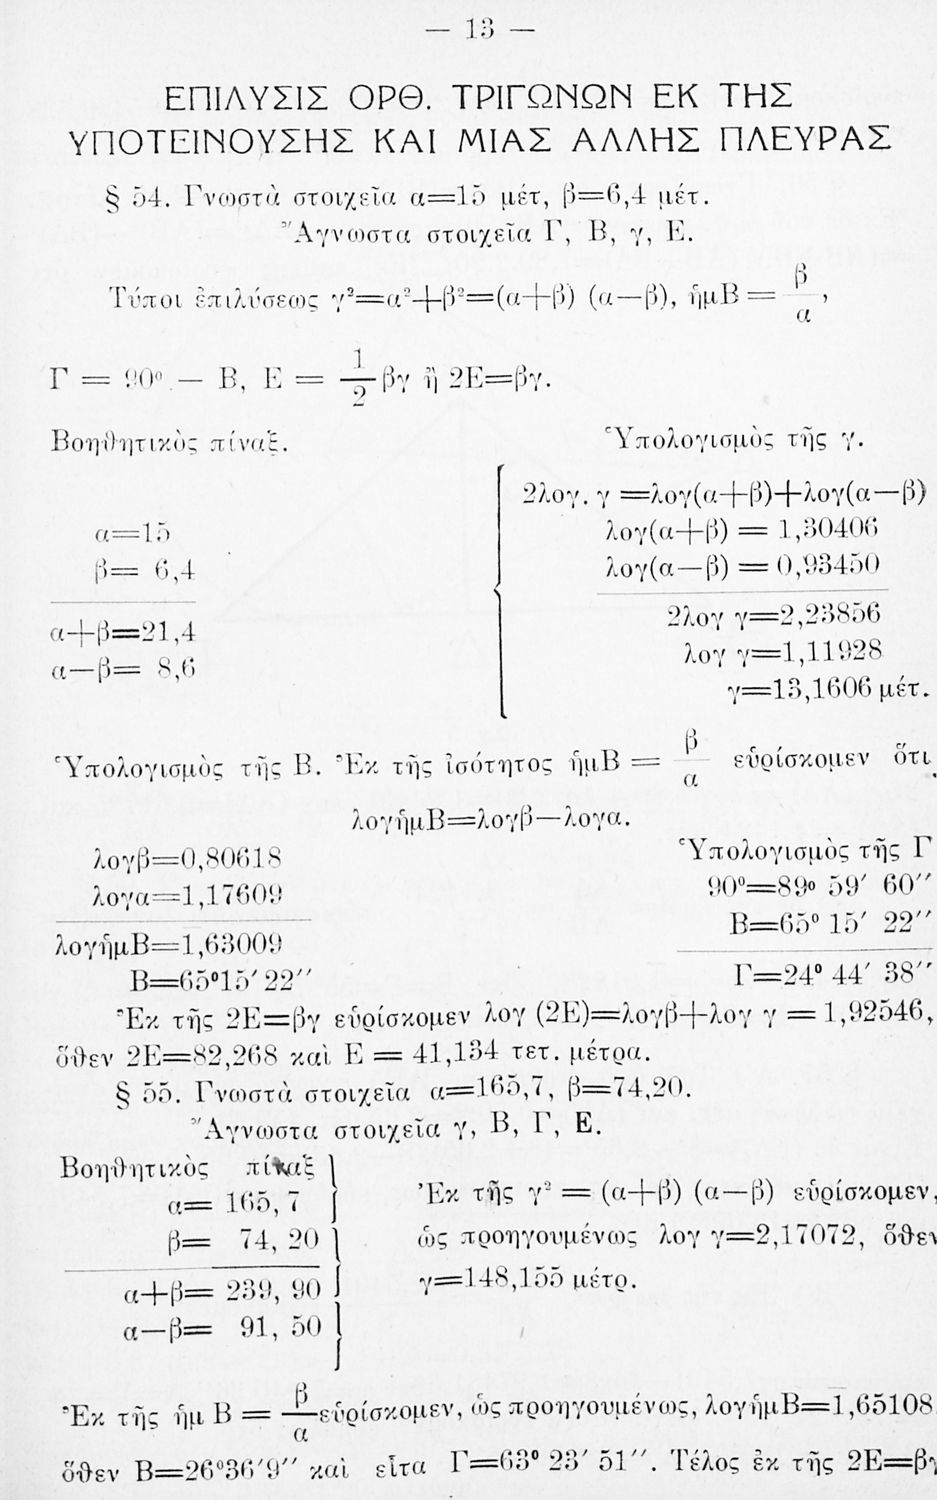 — 13 —
ΕΠΙΛΥΣΙΣ ΟΡΘ. ΤΡΙΓΩΝΩΝ ΕΚ ΤΗΣ
ΥΠΟΤΕΙΝΟΥΣΗΣ ΚΑΙ ΜΙΑΣ ΑΛΛΗΣ ΠΛΕΥΡΑΣ
§ 54. Γνωστὰ στοιχεῖα α=15 μέτ, β=6,4 μέτ.
Ἄγνωστα στοιχεῖα Γ, Β, γ, Ε.
Τύποι ἐπιλύσεως γ²=α²+β²=(α+β) (α—β), ἡμΒ = β/α ,
Γ = 90° — Β, Ε = 1/2 βγ ἢ 2Ε=βγ.
Βοηθητικὸς πίναξ.
α=15
β= 6,4
α+β=21,4
α—β= 8,6
Ὑπολογισμὸς τῆς γ.
2λογ. γ =λογ(α+β)+λογ(α—β)
λογ(α+β) = 1,30406
λογ(α—β) = 0,93450
2λογ γ=2,23856
λογ γ=1,11928
γ=13,1606 μέτ.
Ὑπολογισμὸς τῆς Β. Ἐκ τῆς ἰσότητος ἡμΒ = β/α εὑρίσκομεν ὅτι
λογἡμΒ=λογβ—λογα.
λογβ=0,80618
λογα=1,17609
λογἡμΒ=1,63009
Β=65°15′ 22″
Ὑπολογισμὸς τῆς Γ
90°=89° 59′ 60″
Β=65° 15′ 22″
Γ=24° 44′ 38″
Ἐκ τῆς 2Ε=βγ εὑρίσκομεν λογ (2Ε)=λογβ+λογ γ = 1,92546,
ὅθεν 2Ε=82,268 καὶ Ε = 41,134 τετ. μέτρα.
§ 55. Γνωστὰ στοιχεῖα α=165,7, β=74,20.
Ἄγνωστα στοιχεῖα γ, Β, Γ, Ε.
Βοηθητικὸς πίναξ
α= 165, 7
β= 74, 20
α+β= 239, 90
α—β= 91, 50
Ἐκ τῆς γ² = (α+β) (α—β) εὑρίσκομεν,
ὡς προηγουμένως λογ γ=2,17072, ὅθεν
γ=148,155 μέτρ.
Ἐκ τῆς ἡμ Β = β/α εὑρίσκομεν, ὡς προηγουμένως, λογἡμΒ=1̅,65108
ὅθεν Β=26°36′9″ καὶ εἶτα Γ=63° 23′ 51″. Τέλος ἐκ τῆς 2Ε=βγ